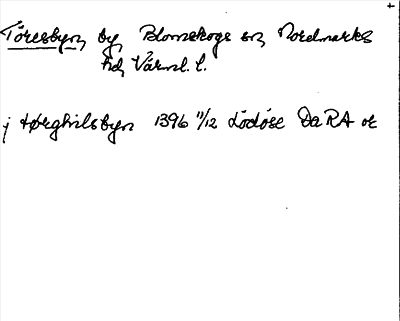 Töresbyn, by, Blomskogs sn, Nordmarks
hd, Värml. l.
j tørghilsbyn 1396 11/12 Lödöse DaRA or